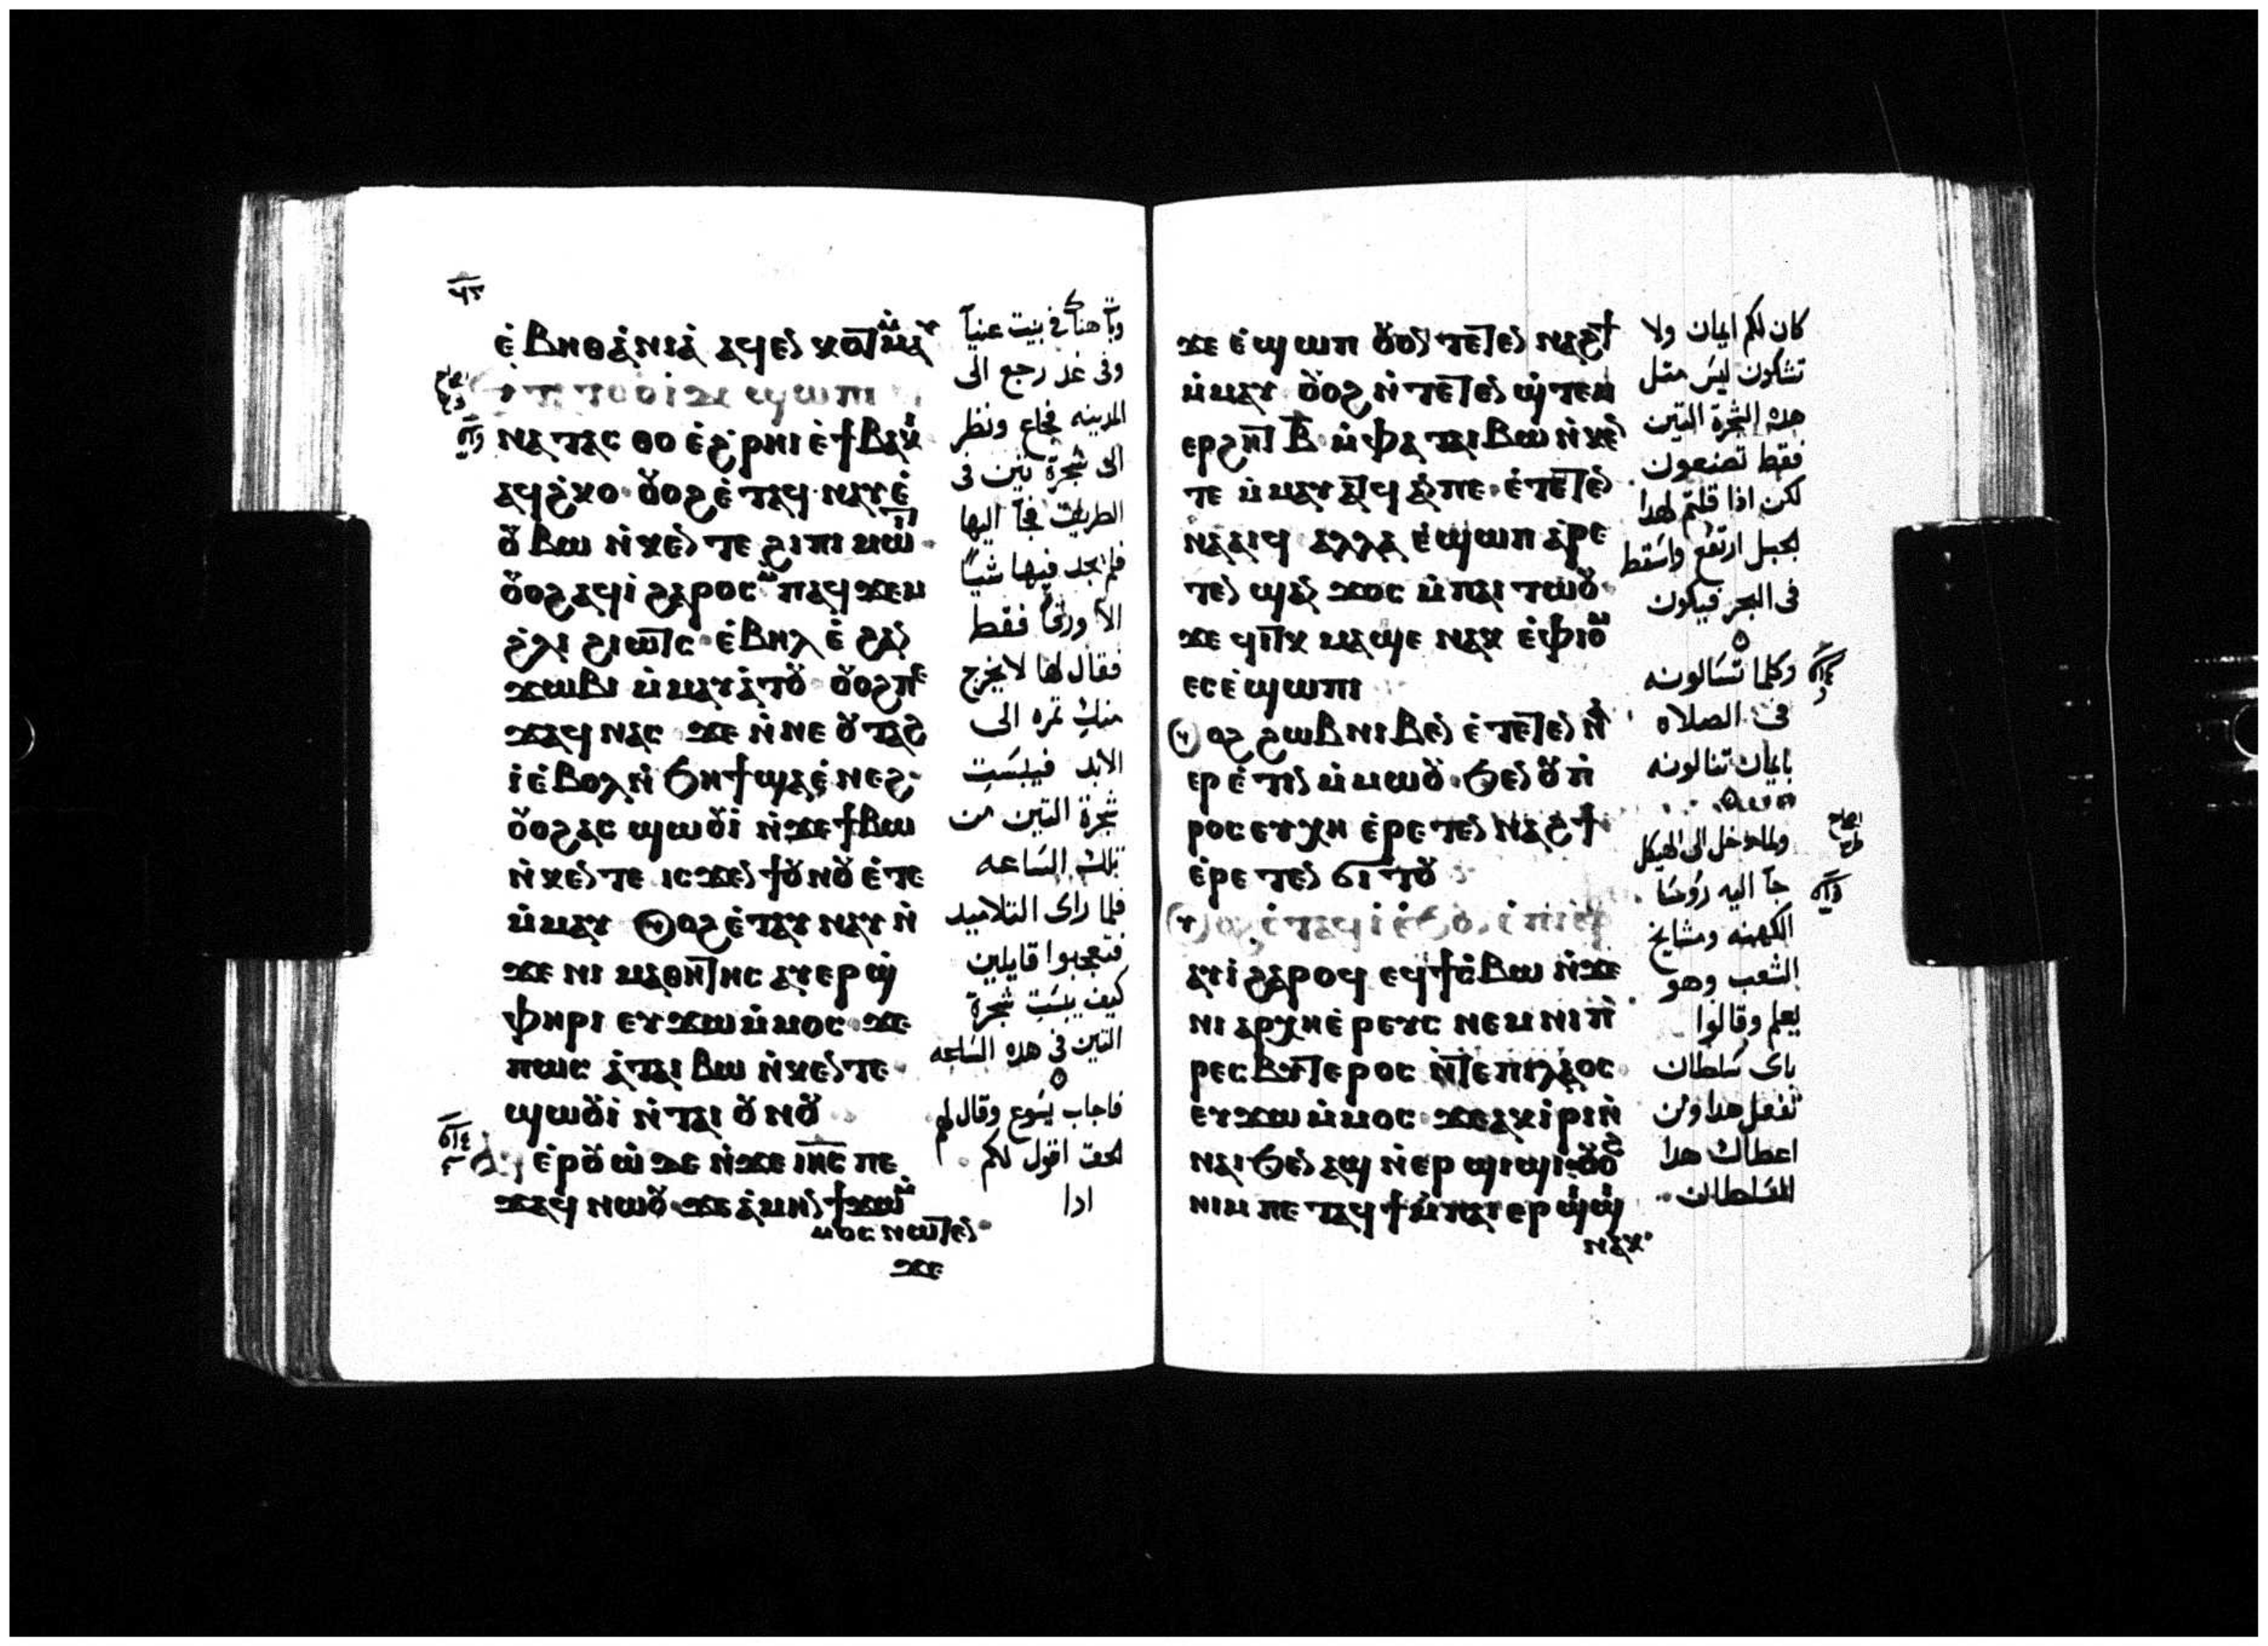 ⲉ̀ⲃⲏⲑⲁ̀ⲛⲓⲁ̀ ⲁϥⲉⲛⲕⲟⲧ ⲙ̀ⲙⲁⲩ
ϣⲱⲡⲓ
ⲛⲁⲧⲁⲥⲑⲟ ⲉ̀ϩ̀ⲣⲏⲓ ⲉ̀ϯⲃⲁⲕⲓ
ⲁϥϩ̀ⲕⲟ ⲟⲩⲟϩ ⲉ̀ⲧⲁϥⲛⲁⲩ ⲉ̀
ⲟⲩⲃⲱ ⲛ̀ⲕⲉⲛⲧⲉ ϩⲓ ⲡⲓⲙⲱⲓⲧ
ⲟⲩⲟϩ ⲁϥⲓ̀ ϩⲁⲣⲟⲥ ⲙ̀ⲡⲁϥϫⲉⲙ
ϩ̀ⲗⲓ ϩⲓⲱⲧⲥ ⲉ̀ⲃⲏⲗ ⲉ̀ ϩⲁⲛ
ϫⲱⲃⲓ ⲙ̀ⲙⲁⲩⲁ̀ⲧⲟⲩ ⲟⲩⲟϩ ⲡⲉ
ϫⲁϥ ⲛⲁⲥ ϫⲉ ⲛ̀ⲛⲉ ⲟⲩⲧⲁϩ
ⲓ̀ ⲉ̀ⲃⲟⲗ ⲛ̀ϧⲏϯ ϣⲁⲉ̀ⲛⲉϩ
ⲟⲩⲟϩ ⲁⲥϣⲱⲟⲩⲓ̀ ⲛ̀ϫⲉ ϯⲃⲱ
ⲛ̀ⲕⲉⲛⲧⲉ ⲓⲥϫⲉⲛ ϯⲟⲩⲛⲟⲩ ⲉ̀ⲧⲉ
ⲙ̀ⲙⲁⲩ ⲟⲩⲟϩ ⲉ̀ⲧⲁⲩⲛⲁⲩ ⲛ̀
ϫⲉ ⲛⲓ ⲙⲁⲑⲏⲧⲏⲥ ⲁⲩⲉⲣϣ̀
ⲫⲏⲣⲓ ⲉⲩϫⲱ ⲙ̀ⲙⲟⲥ ϫⲉ
ⲡⲱⲥ ⲁ̀ⲧⲁⲓ ⲃⲱ ⲛ̀ⲕⲉⲛⲧⲉ
ϣⲱⲟⲩⲓ̀ ⲛ̀ⲧⲁⲓ ⲟⲩⲛⲟⲩ
ⲉ̀ⲣⲟⲩⲱ̀ ⲇⲉ ⲛ̀ϫⲉ ⲓⲏⲥ ⲡⲉ
ϫⲁϥ ⲛⲱⲟⲩ ϫⲉ ⲁ̀ⲙⲏⲛ ϯϫⲱ ⲙ̀
ⲙⲟⲥ ⲛⲱⲧⲉⲛ
ϫⲉ
وبات هناك فى بيت عنيا
وفى غد رجع الى
المدينه فجاع ونظر
الى شجرة تين فى
الطريق فجآ اليها
فلم يجد فيها شياً
الا ورقاً فقط
فقال لها لا يخرج
منك ثمره الى
الابد فيبست
شجرة التين من
تلك الساعه
فلما راى التلاميد
فتعجبوا قايلين
كيف يبست شجرة
التين فى هده الساعه
فاجاب يسوع وقال لهم
الحق اقول لكم
ادا
ϫⲉ ⲉ̀ϣⲱⲡ ⲟⲩⲟⲛ ⲧⲉⲧⲉⲛ ⲛⲁϩϯ
ⲙ̀ⲙⲁⲩ ⲟⲩⲟϩ ⲛ̀ⲧⲉⲧⲉⲛ ϣ̀ⲧⲉⲙ
ⲉⲣϩⲏⲧ ⲃ̅ ⲙ̀ⲫⲁ ⲧⲁⲓ ⲃⲱ ⲛ̀ⲕⲉⲛ
ⲧⲉ ⲙ̀ⲙⲁⲩⲁⲧϥ ⲁⲛ ⲡⲉ ⲉ̀ⲧⲉⲧⲉⲛ
ⲛⲁⲁⲓϥ ⲁⲗⲗⲁ ⲉ̀ϣⲱⲡ ⲁⲣⲉ
ⲧⲉⲛϣⲁⲛϫⲟⲥ ⲙ̀ⲡⲁⲓ ⲧⲱⲟⲩ
ϫⲉ ϥⲓⲧⲕ ⲙⲁϣⲉ ⲛⲁⲕ ⲉ̀ⲫⲓⲟⲙ
ⲉⲥⲉ̀ϣⲱⲡⲓ
ⲟⲩⲟϩ ϩⲱⲃ ⲛⲓⲃⲉⲛ ⲉ̀ⲧⲉⲧⲉⲛⲛⲁ
ⲉⲣⲉ̀ⲧⲓⲛ ⲙ̀ⲙⲱⲟⲩ ϧⲉⲛ ⲟⲩⲡ̀
ⲣⲟⲥⲉⲩⲭⲏ ⲉ̀ⲣⲉⲧⲉⲛ ⲛⲁϩϯ
ⲉ̀ⲣⲉⲧⲉⲛ ϭⲓⲧⲟⲩ
ⲟⲩⲟϩ ⲉ̀ⲧⲁϥⲓ̀ ⲉ̀ϧⲟⲩⲛ ⲉ̀ⲡⲓⲉⲣⲫⲉⲓ
ⲁⲩⲓ̀ ϩⲁⲣⲟϥ ⲉϥϯⲥ̀ⲃⲱ ⲛ̀ϫⲉ
ⲛⲓ ⲁⲣⲭⲏⲉ̀ⲣⲉⲩⲥ ⲛⲉⲙ ⲛⲓⲡ̀
ⲣⲉⲥⲃⲩⲧⲉⲣⲟⲥ ⲛ̀ⲧⲉ ⲡⲓⲗⲁⲟⲥ
ⲉⲩϫⲱ ⲙ̀ⲙⲟⲥ ϫⲉ ⲁⲕⲓ̀ⲣⲓ ⲛ̀
ⲛⲁⲓ ϧⲉⲛ ⲁϣ ⲛ̀ⲉⲣϣⲓϣⲓ ⲟⲩⲟϩ
ⲛⲓⲙ ⲡⲉⲧⲁϥϯ ⲙ̀ⲡⲁⲓ ⲉⲣϣⲓϣⲓ
ⲛⲁⲕ
كان لكم ايمان ولا
تشكون ليس متل
هده الشجرة التين
فقط تصنعون
لكن ادا قلتم لهدا
الجبل ارتفع واسقط
فى البحر فيكون
وكلما تسالونه
فى الصلاه
بايمان تنالونه
ولما دخل الى الهيكل
جآ اليه روسا
الكهنه ومشايخ
الشعب وهو
يعلم وقالوا
باى سلطان
تفعل هدا ومن
اعطاك هدا
السلطان